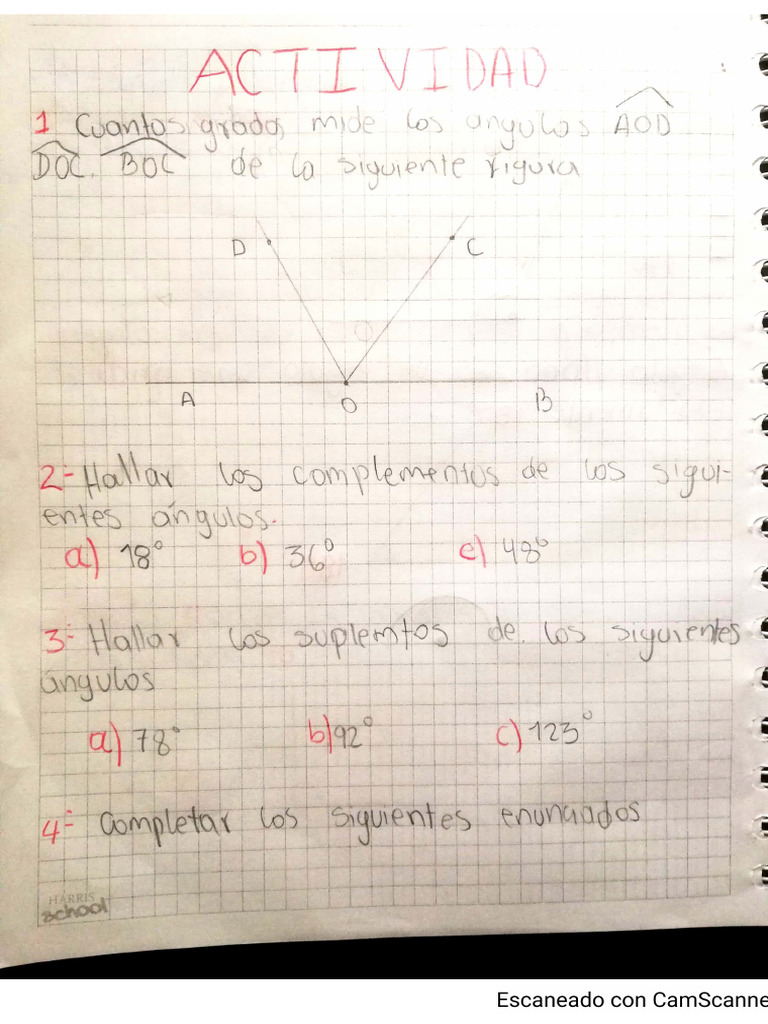 ACTIVIDAD
1 Cuantos grados mide los angulos AOD
DOC. BOC de la siguiente figura
D C
A O B
2- Hallar los complementos de los sigui-
entes angulos.
a) 18° b) 36° c) 48°
3- Hallar los suplemtos de los siguientes
ángulos
a) 78° b) 92° c) 123°
4- Completar los siguientes enunciados
HARRIS
school
Escaneado con CamScanne